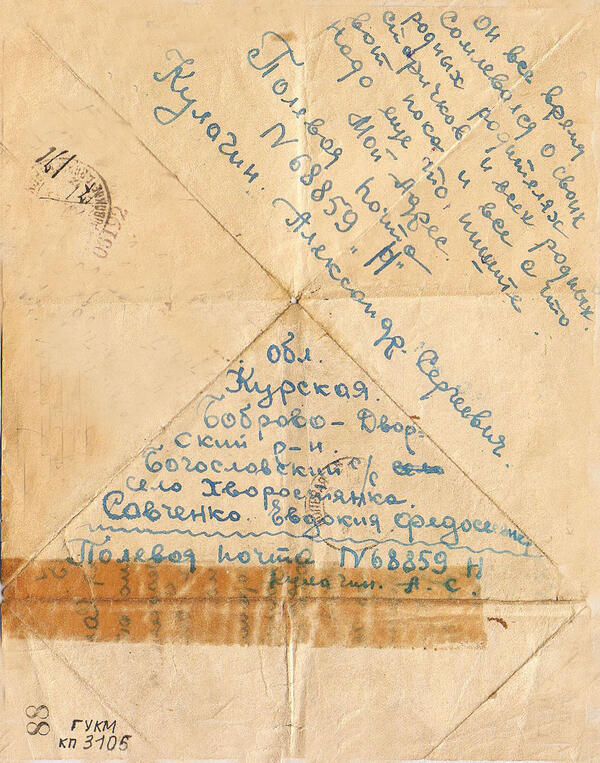 Он все время
сомлевался о своих
родных родителях
старичков и всех родных.
вот пока и все с что
надо еще что, пишите.
Мой Адрес.
Полевая почта
N 68859 "Н"
Кулагин. Александр Сергеевич.
обл.
Курская.
Боброво-Двор-
ский р-н.
Богословский с/с
село Хворостянка.
Савченко Евдокия
Полевая почта N 68859 Н
Кулагин. А. С.
05192
88
ГУКМ
кп 3105